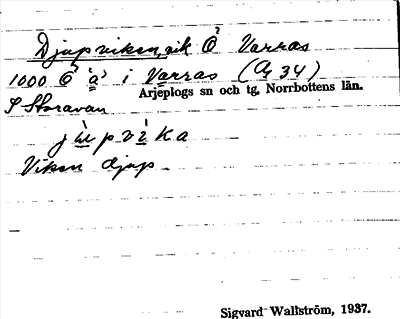 Djupviken, vik Ö Varras
1000 Ö 'a' i Varras (Ar 34)
Arjeplogs sn och tg, Norrbottens län.
I Storavan
jùpvìka
Viken djup
Sigvard Wallström, 1937.